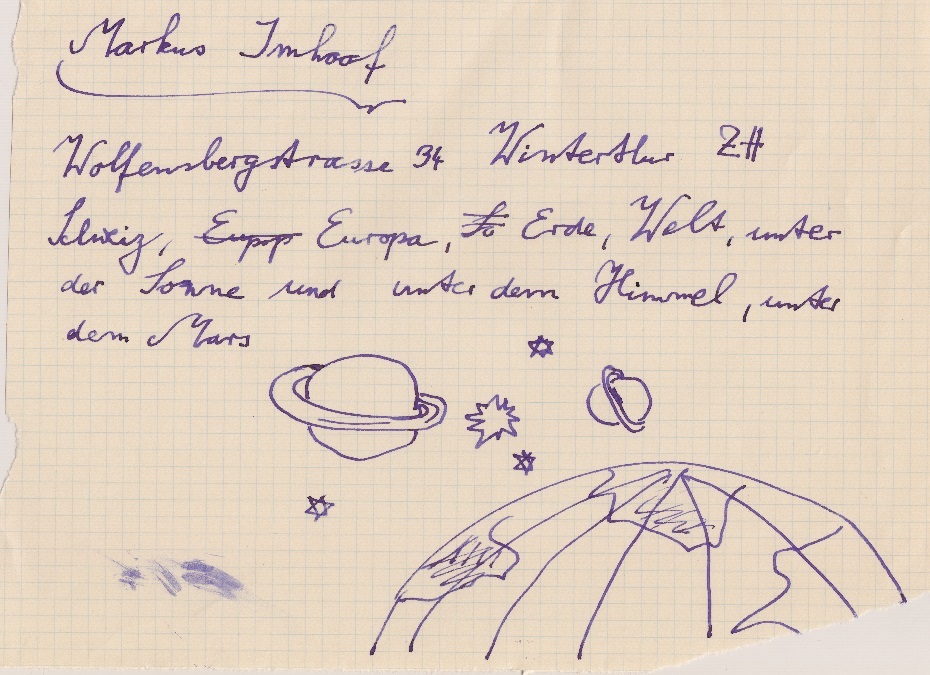 Markus Imhoof
Wolfensbergstrasse 34 Winterthur ZH
Schweiz, Europa, Erde, Welt, unter
der Sonne und unter dem Himmel, unter
dem Mars